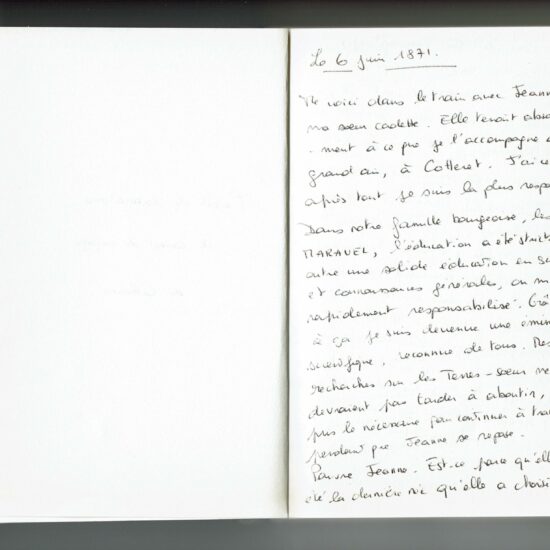 Le 6 juin 1871.
Me voici dans le train avec Jeanne
ma sœur cadette. Elle tenait abso
-ment à ce que je l'accompagne
grand an, à Cotteret. J'ai
après tout je suis la plus respo
Dans notre famille bourgeoise, les
MARAVEL, l'éducation a été strict
outre une solide éducation en sc
et connaissances générales, on m
rapidement responsabilisé. Grâ
à ça je suis devenue une émin
scientifique, reconnue de tous. Mes
recherches sur les Terres-sœur ne
devraient pas tarder à aboutir,
pris le nécessaire pour continuer à tra
pendant que Jeanne se repose.
Pauvre Jeanne. Est-ce parce qu'elle
été la dernière née qu'elle a choisi